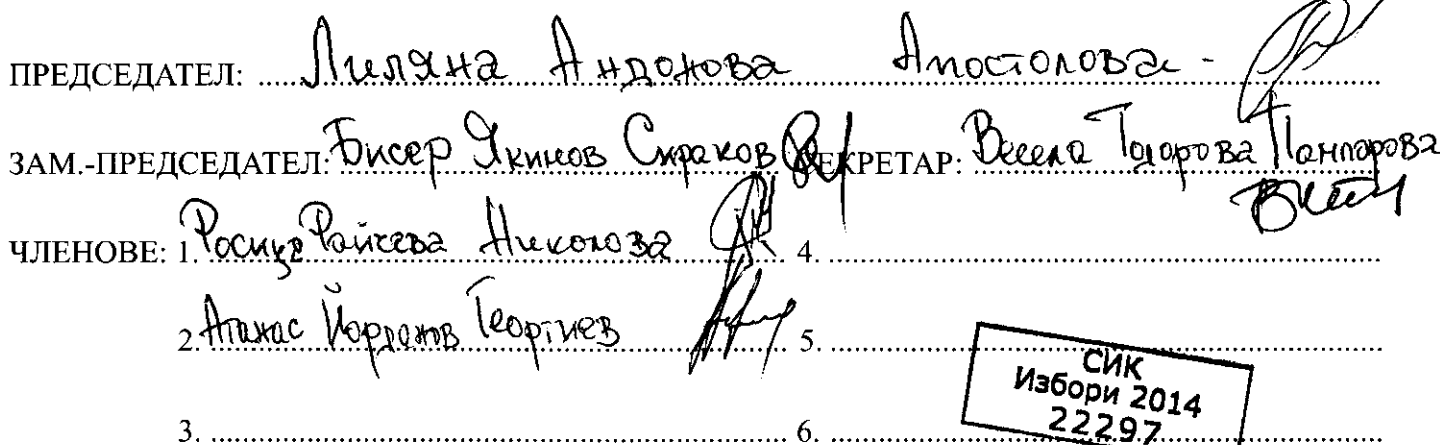 ПРЕДСЕДАТЕЛ: Лиляна Андонова Апостолова -
ЗАМ.-ПРЕДСЕДАТЕЛ: Бисер Якимов Сираков СЕКРЕТАР: Весела Тодорова
ЧЛЕНОВЕ: 1. Росица Райчева Николова 4.
2. Атанас Йорданов Георгиев 5.
3. 6.
СИК
Избори 2014
22297